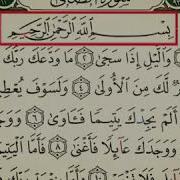 بِسْمِ اللَّهِ الرَّحْمَٰنِ الرَّحِيمِ
وَاللَّيْلِ إِذَا سَجَىٰ ٢ مَا وَدَّعَكَ رَبُّكَ
لَّكَ مِنَ الْأُولَىٰ ٤ وَلَسَوْفَ يُعْطِي
أَلَمْ يَجِدْكَ يَتِيمًا فَـَٔاوَىٰ ٦ وَوَ
وَوَجَدَكَ عَآئِلًا فَأَغْنَىٰ ٨ فَأَمَّا الْيَتِي